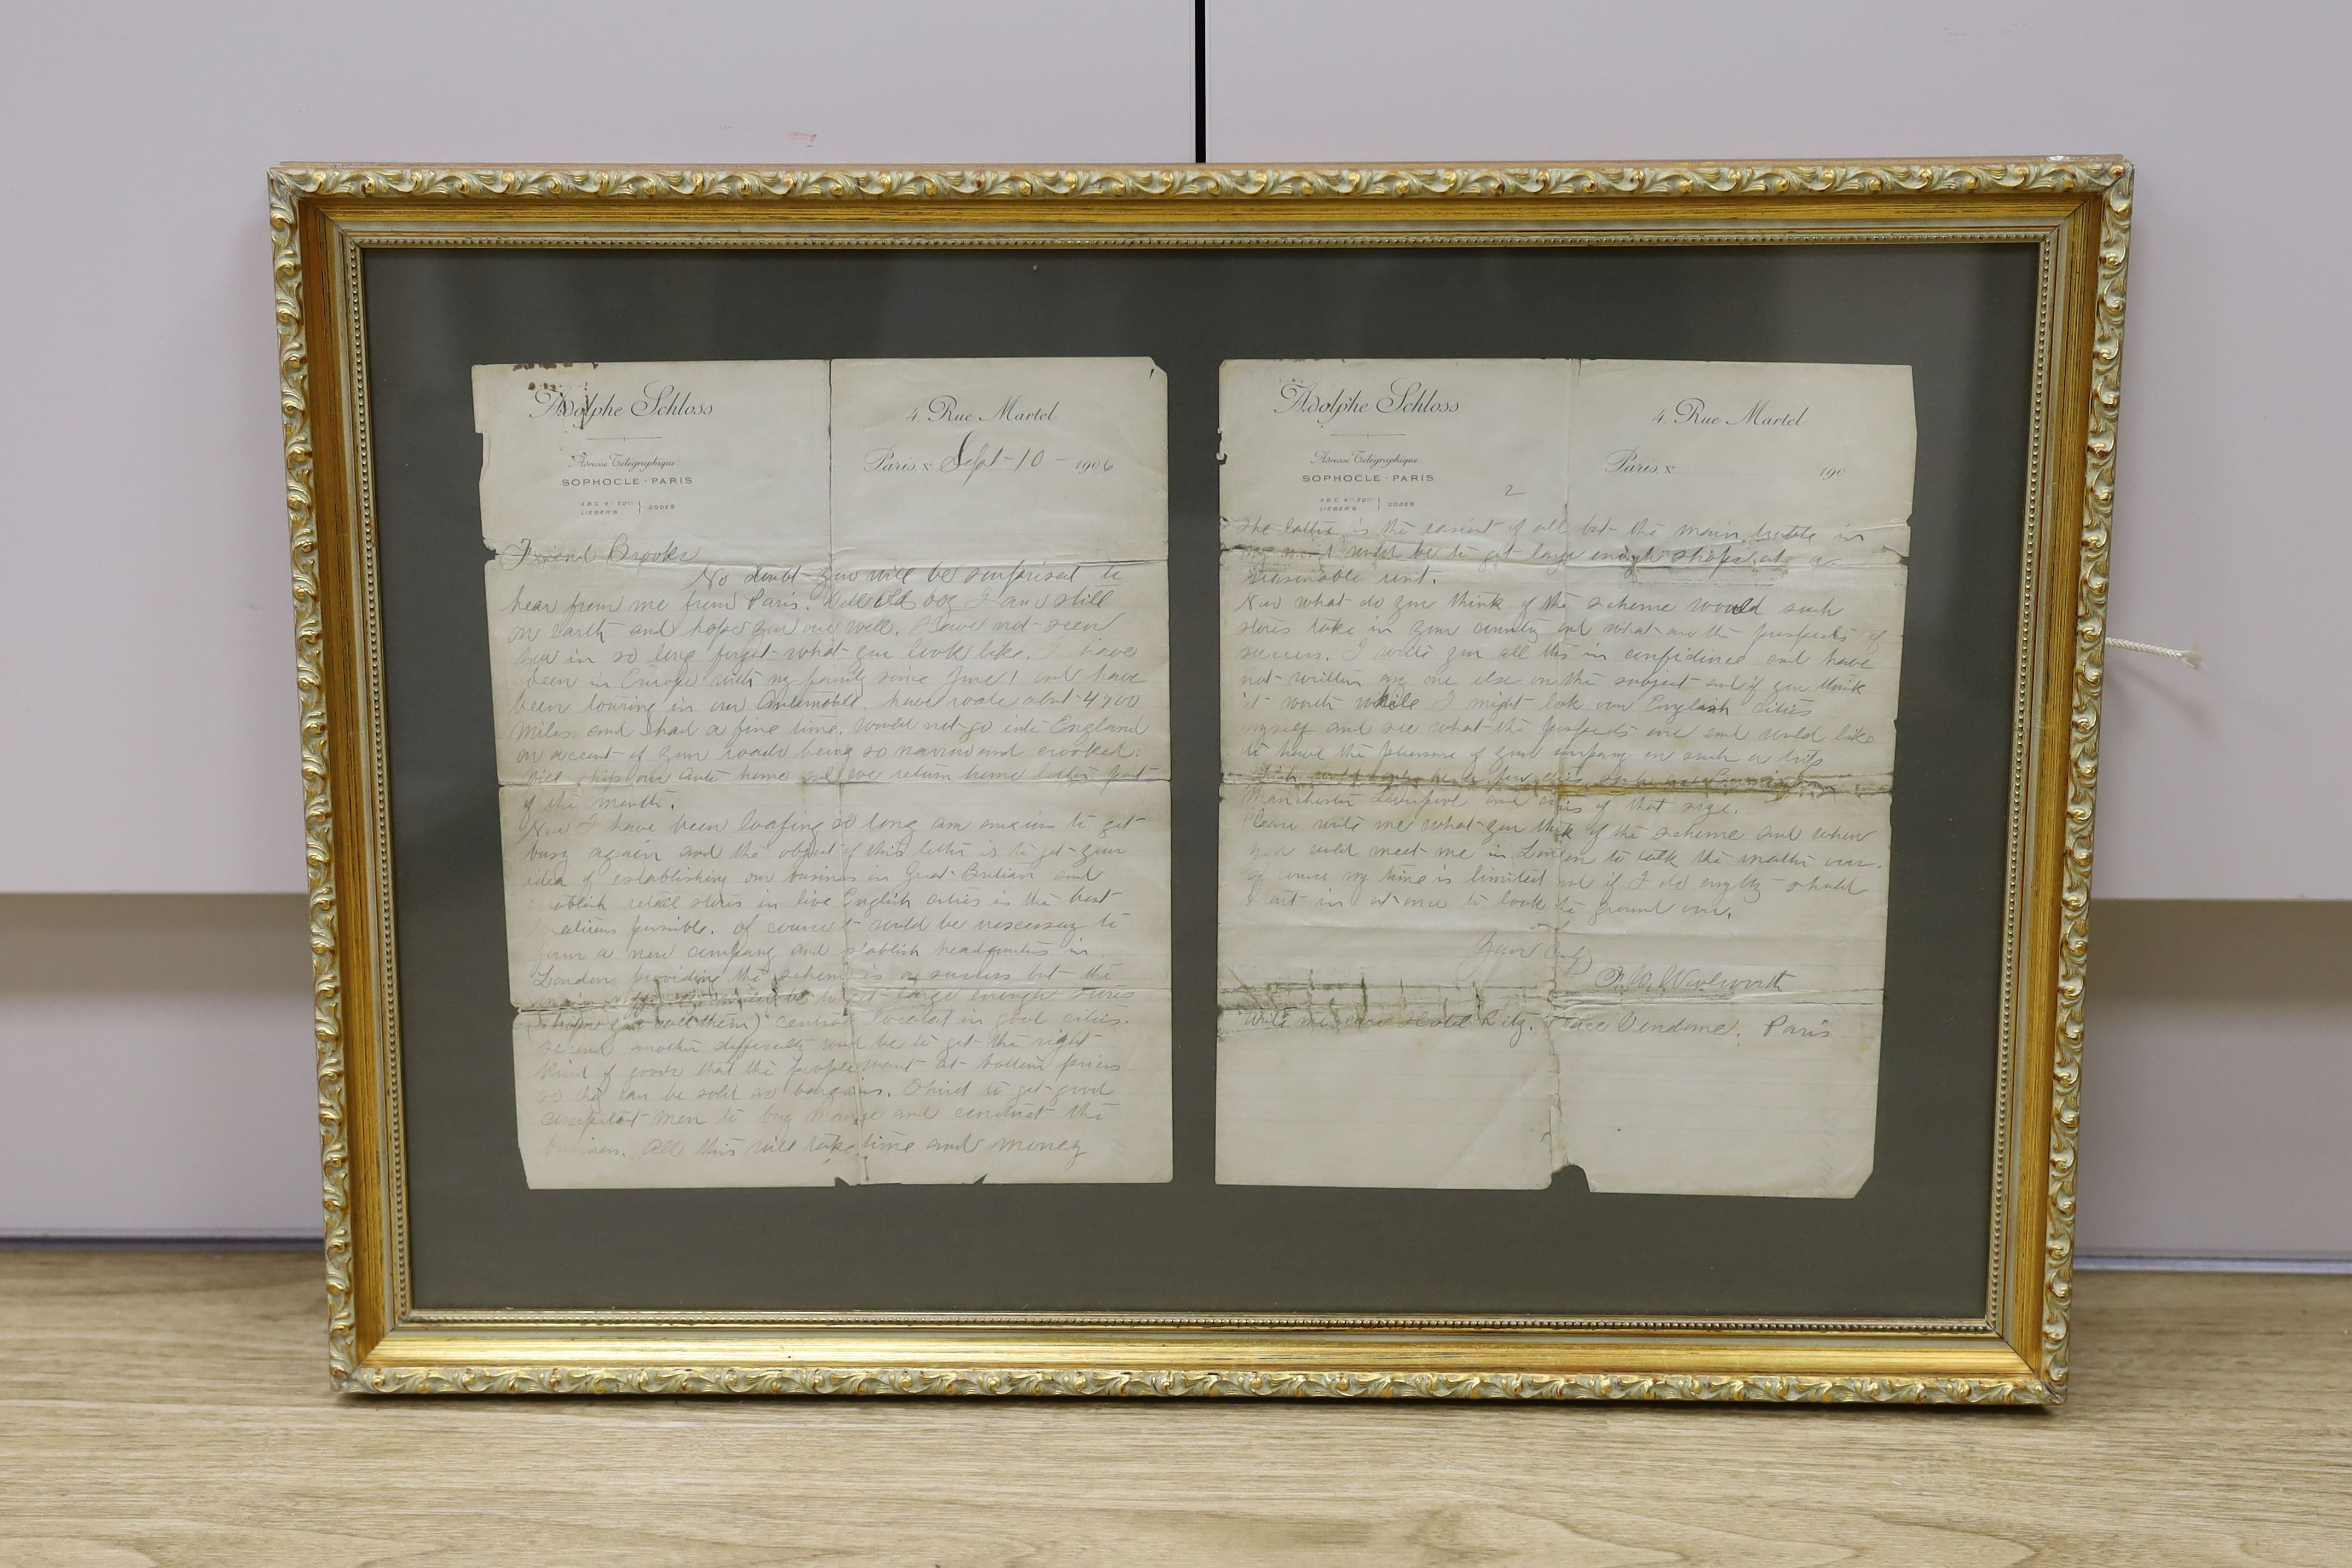 Adolphe Schloss
4. Rue Martel
Adresse Télégraphique
SOPHOCLE-PARIS
A.B.C. 4TH EDON
LIEBER'S
CODES
Paris x Sept-10-1906
Friend Brooks
No doubt you will be surprised to
hear from me from Paris. Well old boy I am still
on earth and hope you are well. Have not seen
you in so long forget what you look like. I have
been in Europe with my family since June 1 and have
been touring in our Automobile. have rode about 4700
miles and had a fine time. Would not go into England
on account of your roads being so narrow and crooked.
Will ship our auto home and we return home latter part
of the month.
Now I have been loafing so long am anxious to get
busy again and the object of this letter is to get your
idea of establishing our business in Great Britian and
establish retail stores in live English cities in the best
locations possible. Of course it would be nescessay to
form a new company and establish headquarters in
London providing the scheme is a success but the
would be to get large enough stores
(shops you call them) central located in good cities.
second another difficulty would be to get the right
kind of goods that the people want at bottom prices
so they can be sold as bargains. Third to get good
competent men to buy manage and conduct the
business. All this will take time and money
Adolphe Schloss
4. Rue Martel
Adresse Télégraphique
SOPHOCLE-PARIS
A.B.C. 4TH EDON
LIEBER'S
CODES
Paris x 190
2
The latter is the easiest of all but the main trouble in
my mind would be to get large enough shops at a
reasonable rent.
Now what do you think of the scheme would such
stores take in your country and what are the prospects of
success. I write you all this in confidince and have
not written any one else on the subject and if you think
it worth while I might look over English cities
myself and see what the prospects are and would like
to have the pleasure of your company on such a trip
which would only be to few cities such as Birmingham
Manchester Liverpool and cities of that size.
Please write me what you think of the scheme and when
you could meet me in London to talk the matter over.
Of course my time is limited and if I do anything should
start in at once to look the ground over.
Yours truly
F. W. Woolworth
Write me care Hotel Ritz. Place Vendome. Paris